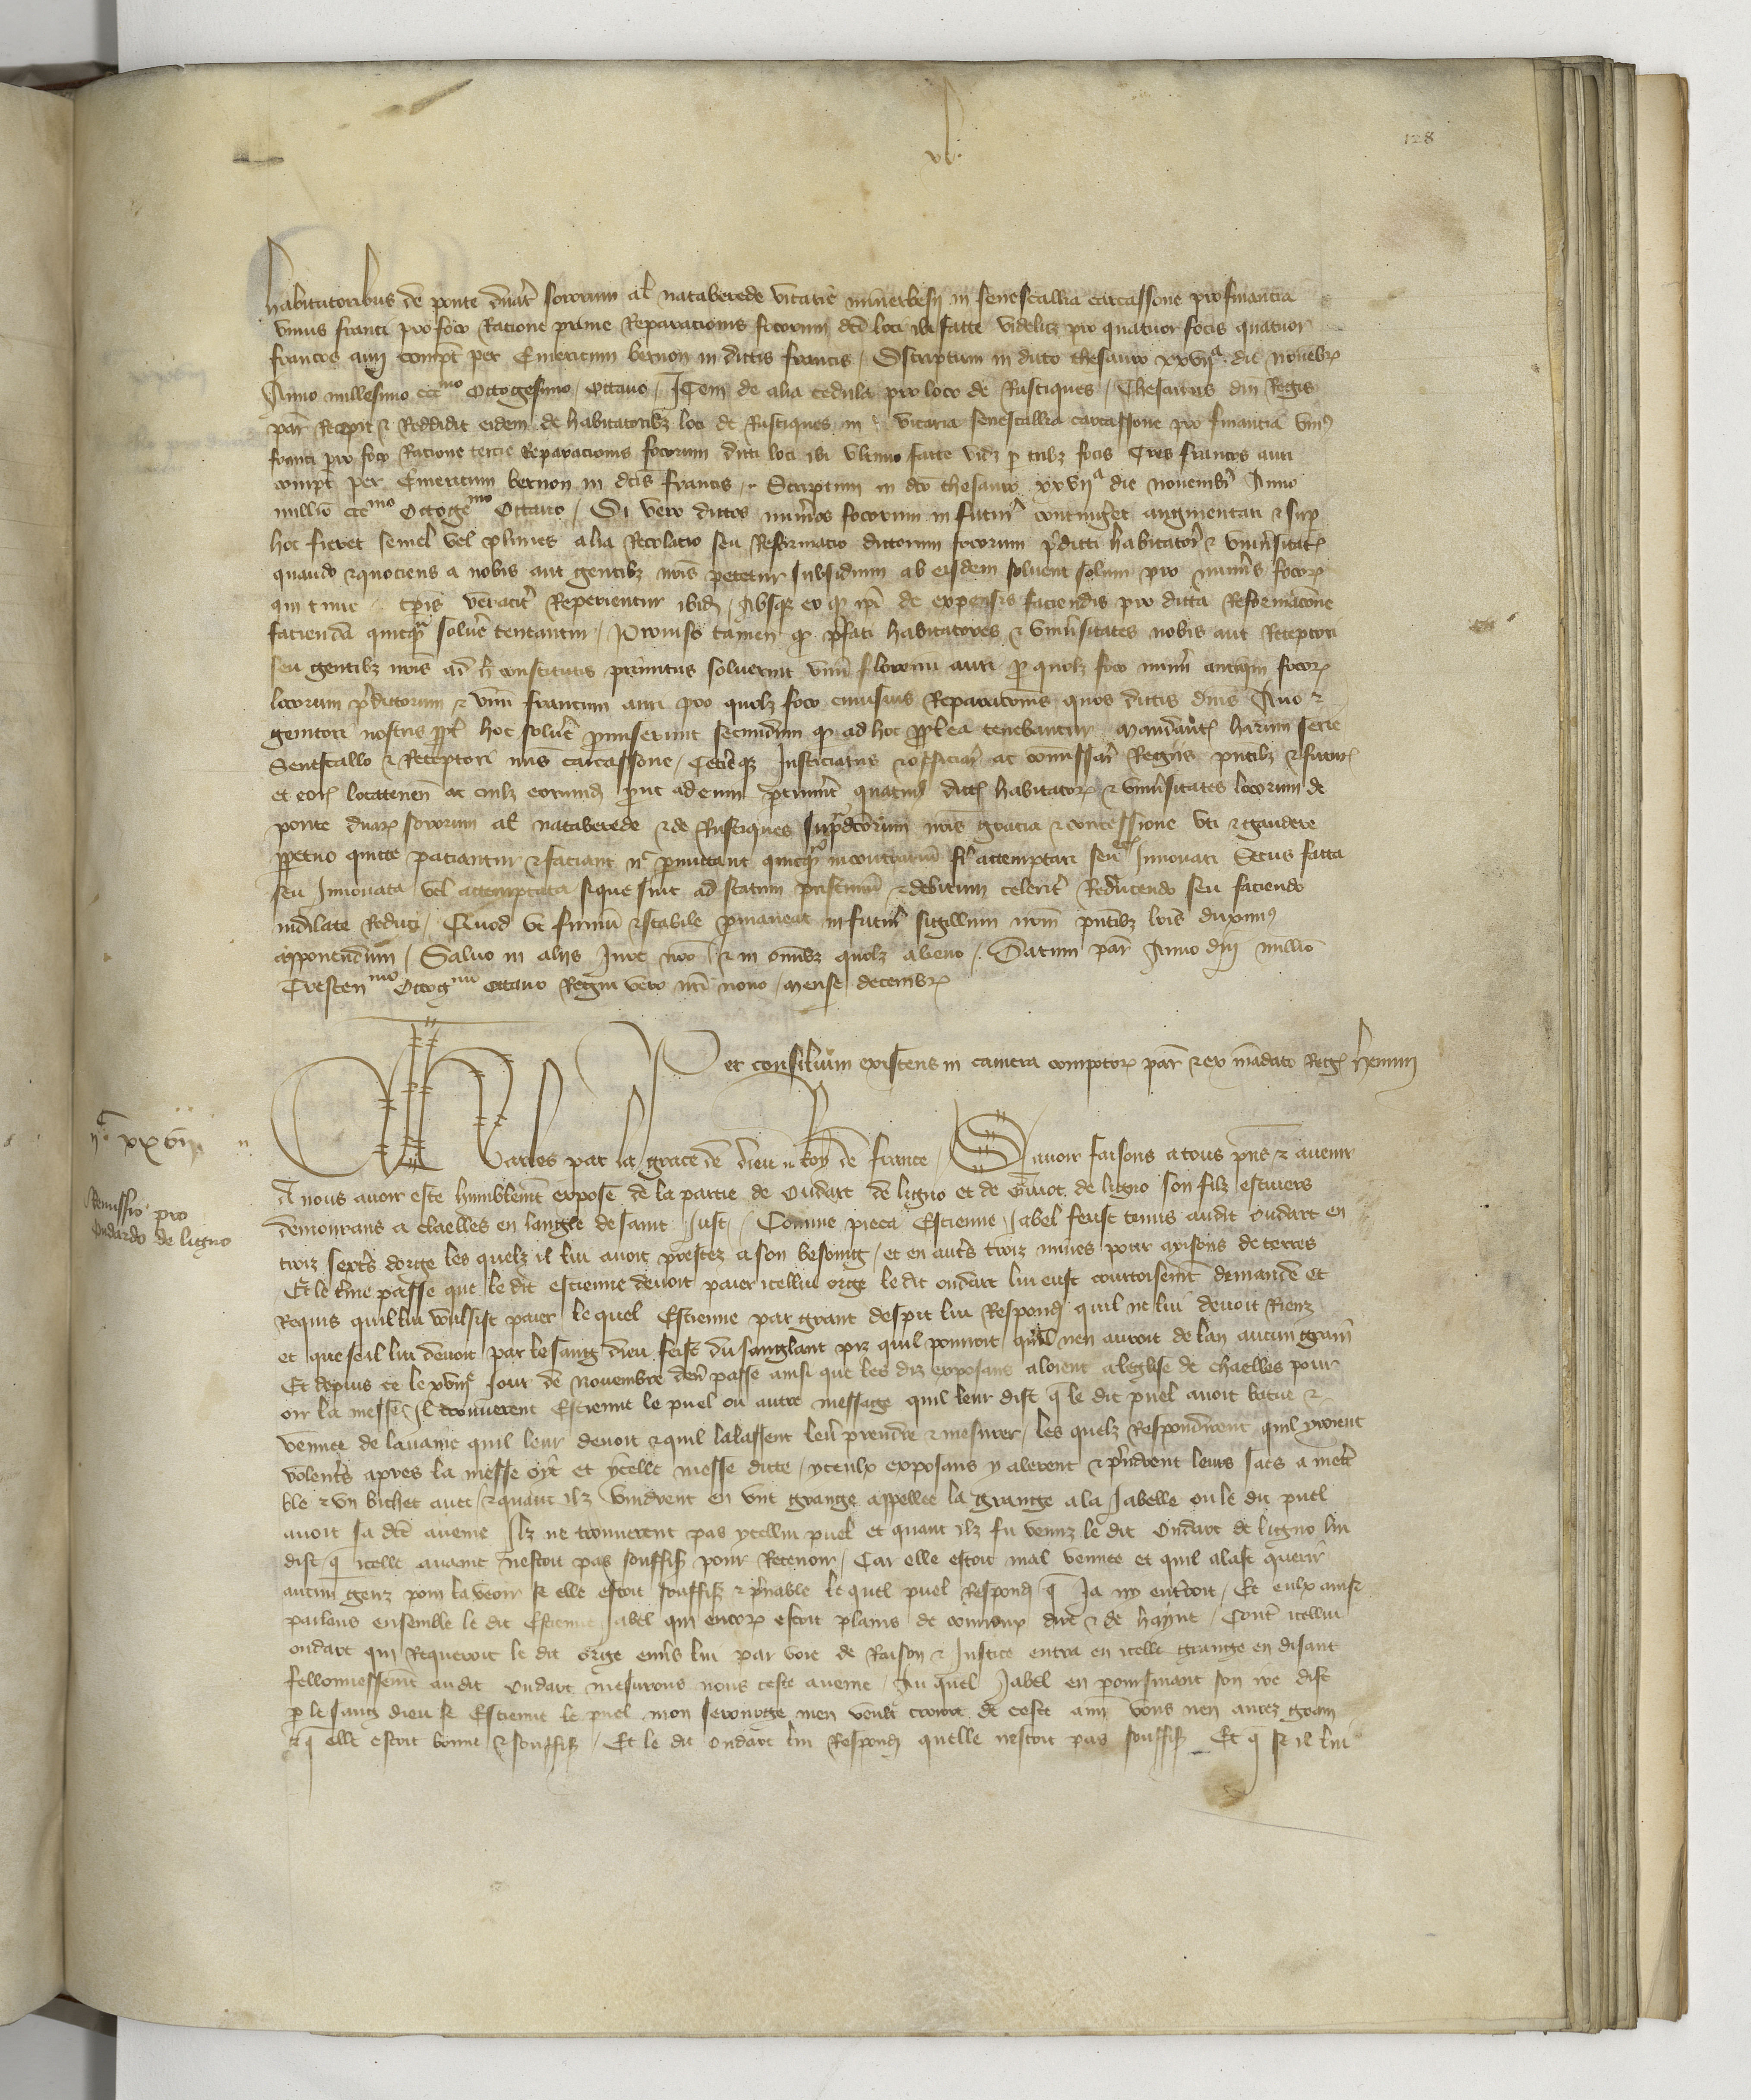 vi.
128
habitatoribus de ponte duar̃ sororum al̃ nataberede vicarie minerbesij in senescallia carcassone pro financia
vnius franci pro foco Racione prime Reparacionis focorum dci loci ibi facte videlicz pro quatuor focis quatuor
francos auri comput̃ per Emericum bernon in dictis francis / Scriptum in dicto thesauro xxvija die nouembr
Anno millesimo cccmo Octogesimo / octauo / Item de alia cedula pro loco de Rustiques / Thesaurus dni Regis
par̃ Recepit & Reddidit eidem de habitatoribz loci de Rustiques in vicaria senescallia carcassone pro financia vnius
franci pro foco Racione tercie Reparacionis focorum dicti loci ibi vltimo facte vidz p tribz focis Tres francos auri
comput per Emericum bernon in dcis francis / Scriptum in dco thesauro xxvija die nouembr Anno
millio cccmo Octogemo Octauo / Si vero dictos numeros focorum in futur̃ contingeret augmentari & sup
hoc fieret semel vel plures alia Recolacio seu Reformacio dictorum focorum pdicti habitator̃ & vniuersitat
quando & quociens a nobis aut gentibz nris petetur subsidium ab eisdem soluent solum pro numeris focor
qui tunc tpis veracit Reperientur ibid / Absqz eo qp ipi de expensis faciendis pro dicta Reformacione
facienda quicqz soluere teneantur / Prouiso tamen qp prefati habitatores & vniuersitates nobis aut Receptori
seu gentibz nris ad h constitutis primitus soluerint vnu florenu auri p quolz foco numeri antiqui focor
locorum pdictorum & vnu francum auri pro quolz foco cuiusuis Reparacionis quos dictis dnis Auo &
genitori nostris ppt hoc soluere promiserunt secundum qp ad hoc ppterea tenebantur Mandantes harum serie
Senescallo & Receptori nris carcassone / Ceterisqz Justiciariis & officiar ac commissar Regiis pntibz & futur
et eor locatenen ac cuilz eorund prout ad eum ptinuerit quatinus dictos habitatores & vniuersitates locorum de
ponte duar sororum al nataberede & de Rustiques supdictorum nris gracia & concessione vti & gaudere
ppetuo quiete paciantur & faciant nec pmittant quicqz in contrarium fieri attemptari seu Innouari Secus facta
seu Innouata vel attemptata si que sint ad statum pristinum & debitum celerit Reducendo seu faciendo
indilate Reduci / Quod vt firmu & stabile pmaneat in futur sigillum nrm pntibz lris duximus
apponendum / Saluo in aliis Jure nro & in omibz quolz alieno / Datum par Anno dni millio
Trescenmo Octogmo octauo Regni vero nri nono / mense decembr
Per consilium existens in camera compotor par & ex mandato Regis hemin
ijc xxvij
Remissio pro
Oudardo de ligno
Charles par la grace de dieu Roy de france / Sauoir faisons a tous pns & auenir
A nous auoir este humblemt expose de la partie de Oudart de ligno et de Guiot de ligno son filz escuiers
demourans a claelles en langle de saint Just / Comme pieca Estienne Jabel feust tenus audit oudart en
troiz sexts dorge les quelz il lui auoit prestez a son besoing / et en autrs troiz mines pour moisons de terres
Et le terme passe que le dit estienne deuoit paier icellui orge le dit oudart lui eust courtoisemt demande et
Requis quil lui voulsist paier le quel Estienne par grant despit lui Respondi quil ne lui deuoit Rienz
et que se il lui deuoit par le sang dieu feist du sanglant piz quil pourroit quil nen auroit de lan aucun grain
Et depuis ce le xviije Jour de nouembre den passe ainsi que les diz exposans aloient a leglise de chaelles pour
oir la messe Il trouuerent Estienne le puel ou autre message quil leur dist q le dit puel auoit batue &
vennee de lauaine quil leur deuoit & quil lalassent leur prendre & mesurer / les quelz Respondirent quil yroient
volents apres la messe oye et ycelle messe dicte / yceulx exposans y alerent & prindrent leurs sacs a mett
ble & vn bichet auec / & quant ilz vindrent en vne grange appellee la grange a la Jabelle ou le dit puel
auoit sa dce aueine Ilz ne trouuerent pas ycellui puel et quant ilz fu venuz le dit Oudart de ligno lui
dist q icelle auaine nestoit pas souffis pour Receuoir / Car elle estoit mal vennee et quil alast querir
aucuns genz pour la veoir se elle estoit souffis & prenable le quel puel Respondi q Ja ny entroit / Et eulx ainsi
parlans ensemble le dit Estienne Jabel qui encor estoit plains de courroux dire & de hayne / Cont icellui
oudart qui Requeroit le dit orge enuers lui par voie de Raison & Justice entra en icelle grange en disant
fellonnessemt audit oudart mesurons nous ceste aueine / Au quel Jabel en poursuiuant son ire dist
p le sang dieu se Estienne le puel mon serourge men veult croire de ceste ann vous nen aurez grain
& q elle estoit bonne & souffis / Et le dit oudart lui Respondi quelle nestoit pas souffis Et q se il lui